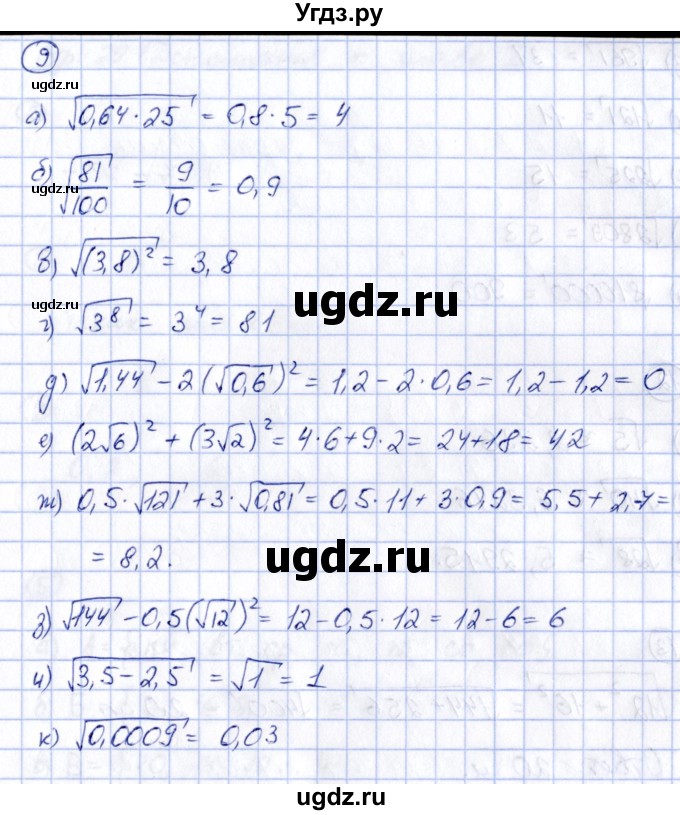 Угдз.ру
9
ugdz.ru
а) √(0,64·25) = 0,8·5 = 4
б) √81/√100 = 9/10 = 0,9
ugdz.ru
в) √((3,8)²) = 3,8
ugdz.ru
ugdz.ru
г) √(3⁸) = 3⁴ = 81
д) √1,44 - 2(√0,6)² = 1,2 - 2·0,6 = 1,2 - 1,2 = 0
е) (2√6)² + (3√2)² = 4·6 + 9·2 = 24 + 18 = 42
ж) 0,5·√121 + 3·√0,81 = 0,5·11 + 3·0,9 = 5,5 + 2,7 =
= 8,2.
ugdz.ru
з) √144 - 0,5(√12)² = 12 - 0,5·12 = 12 - 6 = 6
и) √(3,5 - 2,5) = √1 = 1
к) √0,0009 = 0,03
ugdz.ru
ugdz.ru